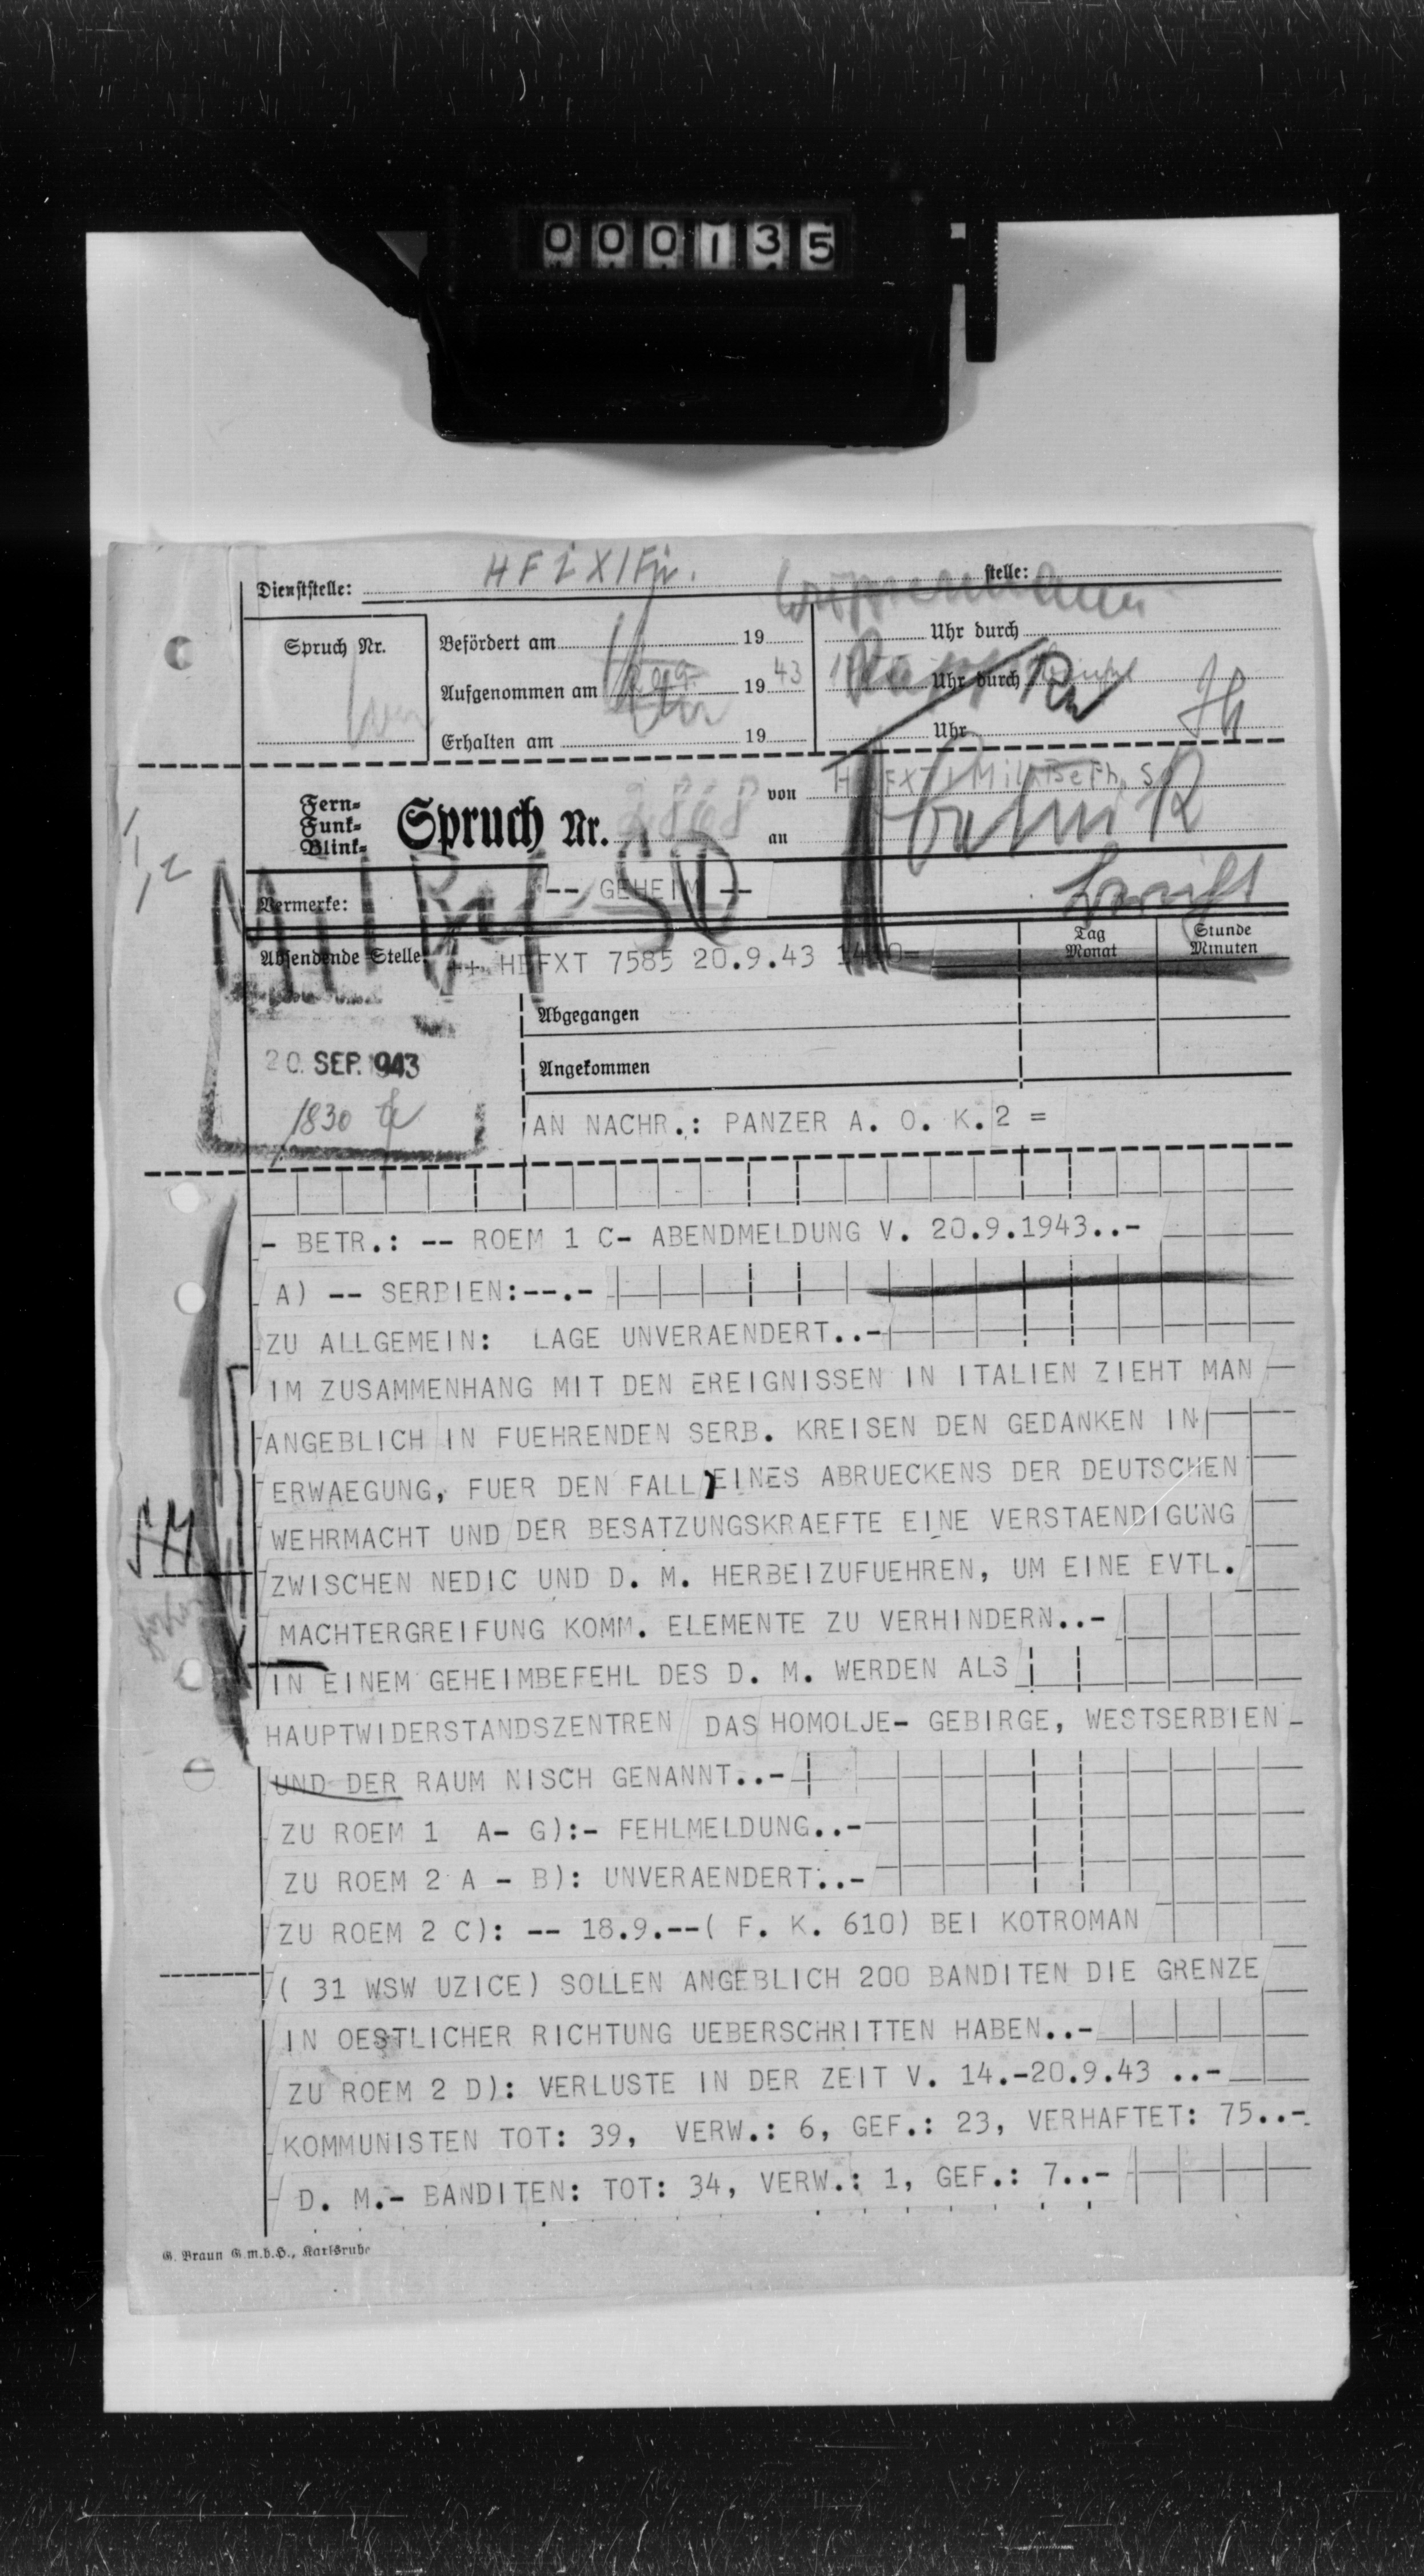 000135
HFIXIFü.
Dienststelle: stelle:
Spruch Nr.
Befördert am 19 Uhr durch
Aufgenommen am 19 43 Uhr durch
Erhalten am 19 Uhr
Fern-
Funk-
Blink-
Spruch Nr. 2868
von
an
1,2
Mil Bef SO
Vermerke: -- GEHEIM --
Absendende Stelle: ++ HBFXT 7585 20.9.43
Tag
Monat
Stunde
Minuten
Abgegangen
20. SEP. 1943
Angekommen
1830
AN NACHR.: PANZER A. O. K. 2 =
- BETR.: -- ROEM 1 C- ABENDMELDUNG V. 20.9.1943..-
A) -- SERBIEN:--.-
ZU ALLGEMEIN: LAGE UNVERAENDERT..-
IM ZUSAMMENHANG MIT DEN EREIGNISSEN IN ITALIEN ZIEHT MAN
ANGEBLICH IN FUEHRENDEN SERB. KREISEN DEN GEDANKEN IN
ERWAEGUNG, FUER DEN FALL EINES ABRUECKENS DER DEUTSCHEN
WEHRMACHT UND DER BESATZUNGSKRAEFTE EINE VERSTAENDIGUNG
ZWISCHEN NEDIC UND D. M. HERBEIZUFUEHREN, UM EINE EVTL.
MACHTERGREIFUNG KOMM. ELEMENTE ZU VERHINDERN..-
IN EINEM GEHEIMBEFEHL DES D. M. WERDEN ALS
HAUPTWIDERSTANDSZENTREN DAS HOMOLJE- GEBIRGE, WESTSERBIEN
UND DER RAUM NISCH GENANNT..-
ZU ROEM 1 A- G):- FEHLMELDUNG..-
ZU ROEM 2 A - B): UNVERAENDERT..-
ZU ROEM 2 C): -- 18.9.--( F. K. 610) BEI KOTROMAN
( 31 WSW UZICE) SOLLEN ANGEBLICH 200 BANDITEN DIE GRENZE
IN OESTLICHER RICHTUNG UEBERSCHRITTEN HABEN..-
ZU ROEM 2 D): VERLUSTE IN DER ZEIT V. 14.-20.9.43 ..-
KOMMUNISTEN TOT: 39, VERW.: 6, GEF.: 23, VERHAFTET: 75..-
D. M.- BANDITEN: TOT: 34, VERW.: 1, GEF.: 7..-
G. Braun G.m.b.H., Karlsruhe